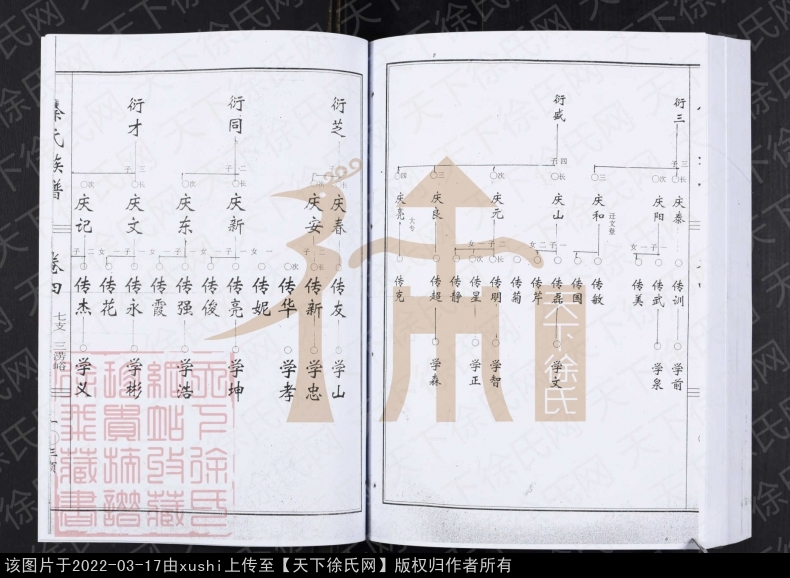 衍三
三子
庆泰
次
庆阳
三
庆和
迁文登
传训
学前
传武
学泉
传美
传敏
传国
衍盛
四子
长
庆山
次
庆元
三
庆良
四
庆亮
大专
一子二女
传磊
学文
传芹
传菊
传明
学智
传星
学正
传静
传超
学森
传克
衍芝
长
庆春
次
庆安
传友
学山
二子
长
传新
学忠
次
传华
学孝
衍同
二子
长
庆新
次
庆东
一子一女
传妮
传亮
学坤
传俊
一子一女
传强
学浩
传霞
衍才
三子
长
庆文
次
庆记
一子一女
传永
学彬
传花
传杰
学义
徐氏族谱
卷四
七支
天下徐氏
天下徐氏网
该图片于2022-03-17由xushi上传至【天下徐氏网】版权归作者所有